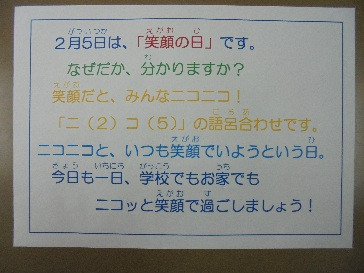 2月5日は、「笑顔の日」です。
なぜだか、分かりますか？
笑顔だと、みんなニコニコ！
「ニ（2）コ（5）」の語呂合わせです。
ニコニコと、いつも笑顔でいようという日。
今日も一日、学校でもお家でも
ニコッと笑顔で過ごしましょう！